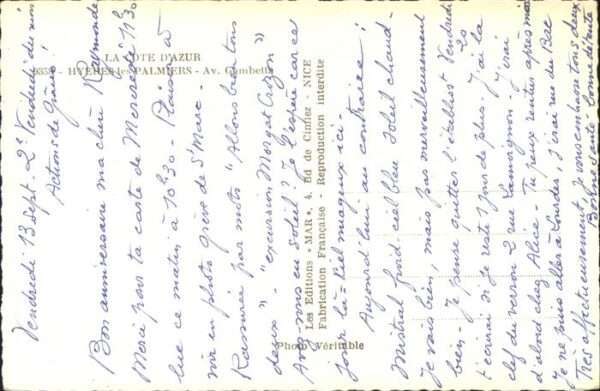 LA COTE D'AZUR
HYÈRES-les-PALMIERS - Av. Gambetta
Les Editions "MAR", 4, Bd de Cimiez - NICE
Fabrication Française - Reproduction interdite
Photo Véritable
Vendredi 13 Sept. 2e Vendredi du mois
Actions de Grâce!
Bon anniversaire ma chère Raymonde
Merci pour ta carte de Mercredi 11h30
lue ce matin à 10h30 - Plaisir à
voir en photo grève de St Marc -
Rassurée par mots "Allons bien tous
deux" - "excursion Morgat Crozon"
Avez vous eu soleil? Je l'espère car ce
jour là - ciel nuageux ici -
Aujourd'hui au contraire!
Mistral froid - ciel bleu soleil chaud -
je vais bien, mais pas merveilleusement
bien - Je pense quitter l'établist Vendredi
t'écrirai si je reste 1 jour de plus. J'ai la
clef du verrou 2 rue Lamoignon - J'irai
d'abord chez Alice - Tu peux rentrer après moi
Je ne puis aller à Lourdes, j'irai rue du Bac
Très affectueusement, je vous embrasse tous deux
Bonne Santé bonne détente